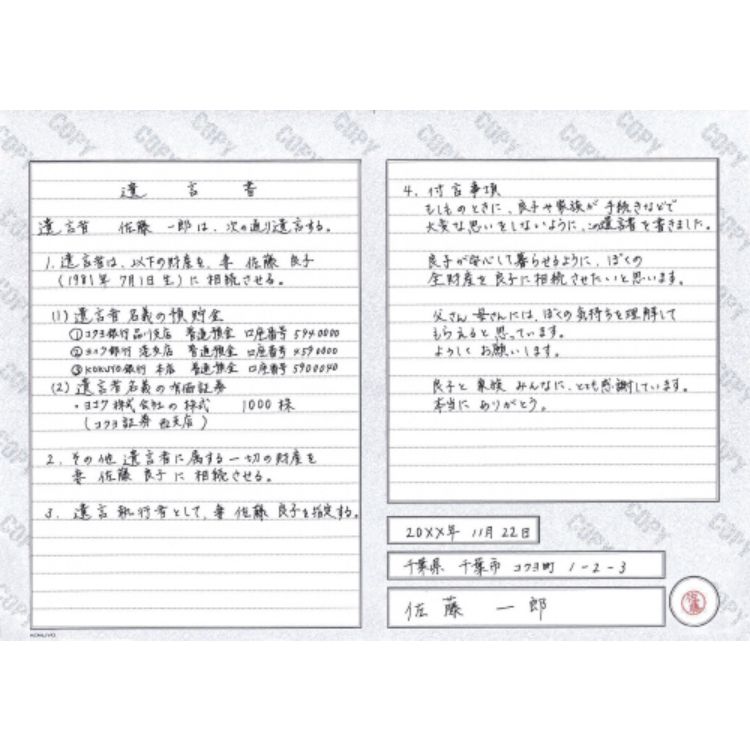 遺言書
遺言者 佐藤 一郎は、次の通り遺言する。
1. 遺言者は、以下の財産を、妻 佐藤 良子
(1981年 7月1日生)に相続させる。
(1) 遺言者名義の預貯金
①コクヨ銀行品川支店 普通預金 口座番号 5940000
②ヨコク銀行 港支店 普通預金 口座番号 4590000
③KOKUYO銀行 本店 普通預金 口座番号 5900040
(2) 遺言者名義の有価証券
・ヨコク株式会社の株式 1000株
(コクヨ証券 西支店)
2. その他 遺言者に属する一切の財産を
妻 佐藤 良子に相続させる。
3. 遺言執行者として、妻 佐藤 良子を指定する。
KOKUYO
4. 付言事項
もしものときに、良子や家族が手続きなどで
大変な思いをしないように、この遺言書を書きました。
良子が安心して暮らせるように、ぼくの
全財産を良子に相続させたいと思います。
父さん 母さんには、ぼくの気持ちを理解して
もらえると思っています。
よろしくお願いします。
良子と家族 みんなに、とても感謝しています。
本当に ありがとう。
20XX年 11月 22日
千葉県 千葉市 コクヨ町 1-2-3
佐藤 一郎
佐藤
COPY